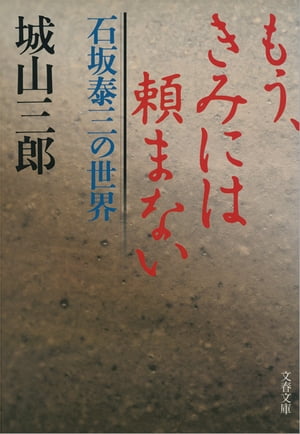 もう、
きみには
頼まない
石坂泰三の世界
城山三郎
文春文庫